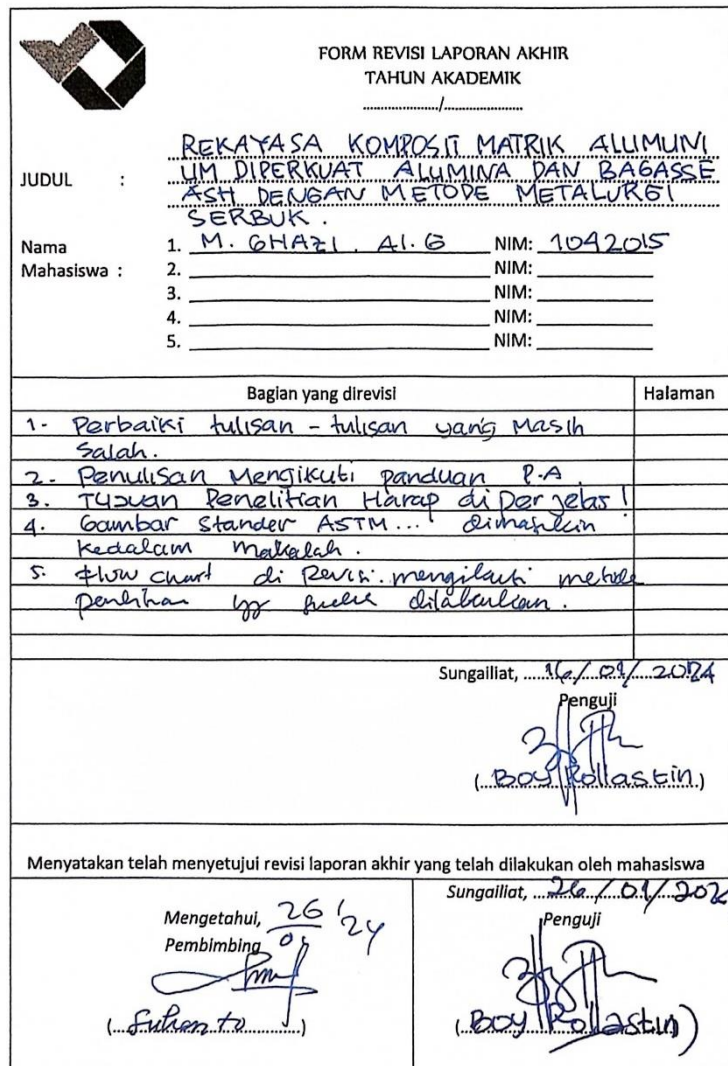 FORM REVISI LAPORAN AKHIR
TAHUN AKADEMIK
...................../.....................
JUDUL : REKAYASA KOMPOSIT MATRIK ALUMUNI
UM DIPERKUAT ALUMINA DAN BAGASSE
ASH DENGAN METODE METALURGI
SERBUK.
Nama Mahasiswa : 1. M. GHAZI. Al. G NIM: 1042015
2. NIM:
3. NIM:
4. NIM:
5. NIM:
Bagian yang direvisi Halaman
1- Perbaiki tulisan - tulisan yang Masih
Salah.
2- Penulisan Mengikuti panduan P.A.
3. Tujuan Penelitian Harap diperjelas!
4. Gambar Stander ASTM... dimasukin
Kedalam Makalah.
5. Flow chart di Revisi mengikuti metode
yg dilakukan.
Sungailiat, 16/01/2024
Penguji
(Boy Rollastin)
Menyatakan telah menyetujui revisi laporan akhir yang telah dilakukan oleh mahasiswa
Mengetahui, 26/01 '24
Pembimbing
(Suhanto)
Sungailiat, 26/01/202
Penguji
(Boy Rollastin)